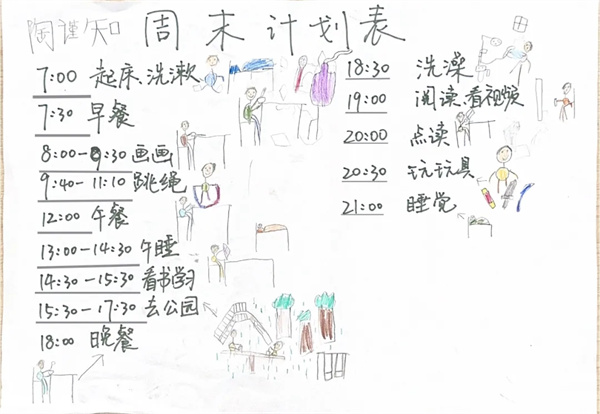 陶谨知 周末计划表
7:00 起床、洗漱
7:30 早餐
8:00-9:30 画画
9:40-11:10 跳绳
12:00 午餐
13:00-14:30 午睡
14:30-15:30 看书学习
15:30-17:30 去公园
18:00 晚餐
18:30 洗澡
19:00 阅读、看视频
20:00 点读
20:30 玩玩具
21:00 睡觉